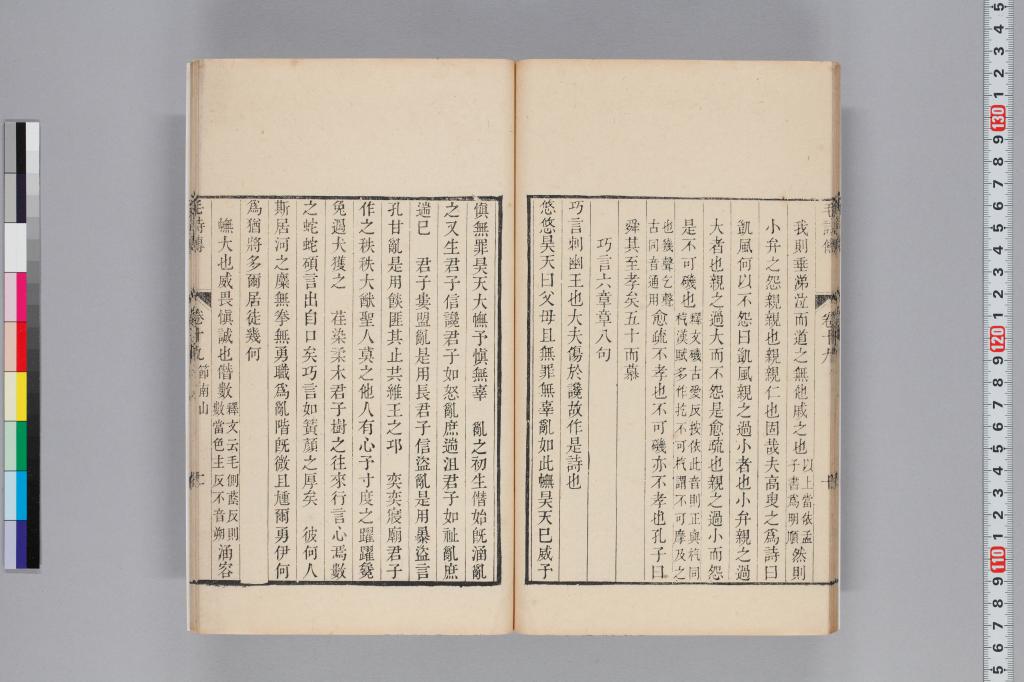 我則垂涕泣而道之無他戚之也以上當依孟子書爲明顯然則
小弁之怨親親也親親仁也固哉夫高叟之爲詩曰
凱風何以不怨曰凱風親之過小者也小弁親之過
大者也親之過大而不怨是愈疏也親之過小而怨
是不可磯也釋文磯古愛反按依此音則正與杚同杚漢賦多作扢不可杚謂不可摩及之
也幾聲乞聲古同音通用愈疏不孝也不可磯亦不孝也孔子曰
舜其至孝矣五十而慕
巧言六章章八句
巧言刺幽王也大夫傷於讒故作是詩也
悠悠昊天曰父母且無罪無辜亂如此幠昊天巳威予
愼無罪昊天大幠予愼無辜　亂之初生僭始旣涵亂
之又生君子信讒君子如怒亂庶遄沮君子如祉亂庶
遄巳　君子婁盟亂是用長君子信盜亂是用暴盜言
孔甘亂是用餤匪其止共維王之邛　奕奕寢廟君子
作之秩秩大猷聖人莫之他人有心予寸度之躍躍毚
兔遇犬獲之　荏染柔木君子樹之往來行言心焉數
之蛇蛇碩言出自口矣巧言如簧顏之厚矣　彼何人
斯居河之麋無拳無勇職爲亂階旣微且尰爾勇伊何
爲猶將多爾居徒幾何
幠大也威畏愼誠也僭數釋文云毛側蔭反則數當色主反不音朔涵容
毛詩傳
卷十九
節南山